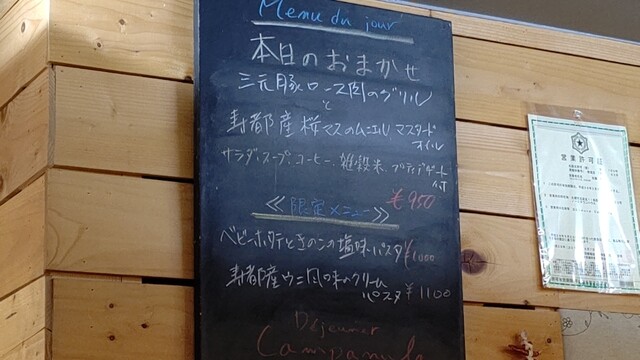 Menu du jour
本日のおまかせ
三元豚ロース肉のグリル
と
寿都産 桜マスのムニエル マスタード
オイル
サラダ、スープ、コーヒー、雑穀米、プティデザート
付
¥950
≪限定メニュー≫
ベビーホタテときのこの塩味パスタ ¥1000
寿都産ウニ風味のクリーム
パスタ ¥1100
Déjeuner
Campanula
営業許可証